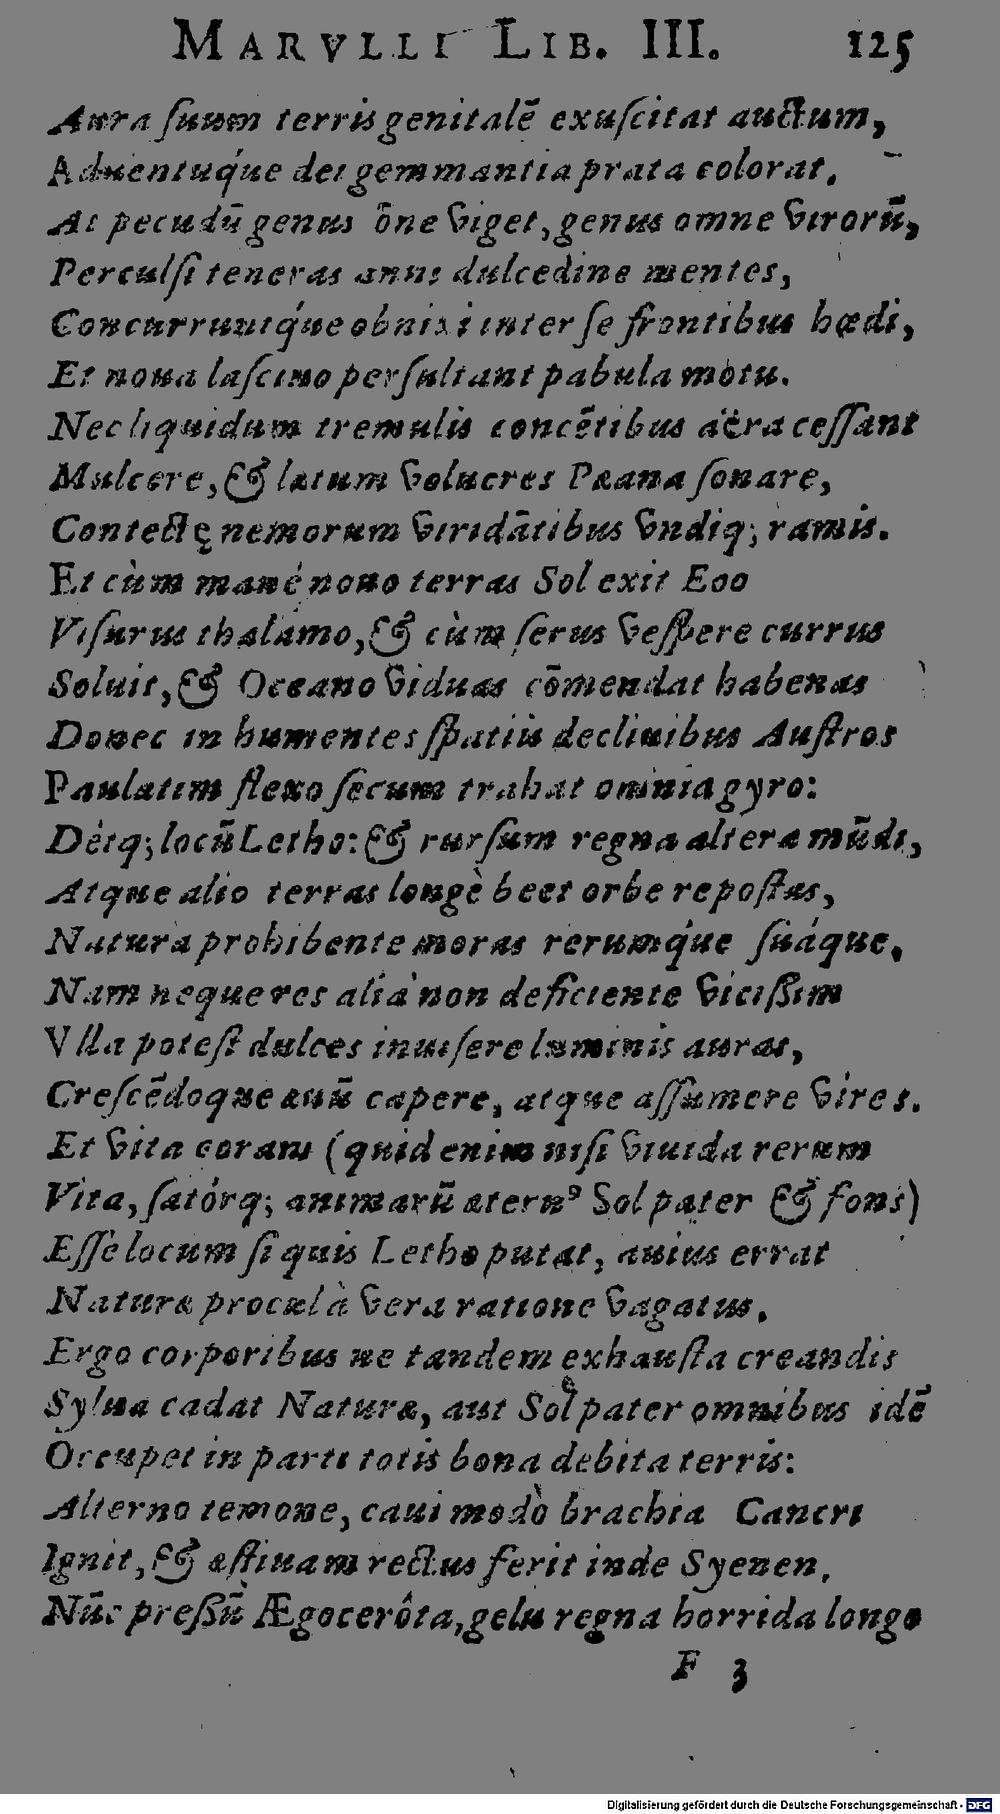 MARVLLI LIB. III. 125
Aura ſuum terris genitalē exuſcitat auctum,
Aduentuq́ue dei gemmantia prata colorat.
At pecudū genus ōne viget, genus omne virorū,
Perculſi teneras anni dulcedine mentes,
Concurruntq́ue obnixi inter ſe frontibus hædi,
Et noua laſciuo perſultant pabula motu.
Nec liquidum tremulis concētibus aëra ceſſant
Mulcere, & lætum volucres Pæana ſonare,
Contectę nemorum viridātibus vndiq; ramis.
Et cùm manè nouo terras Sol exit Eoo
Viſurus thalamo, & cùm ſerus veſpere currus
Soluit, & Oceano viduas cōmendat habenas
Donec in humentes ſpatiis decliuibus Auſtros
Paulatim flexo ſecum trahat omnia gyro:
Détq; locū Letho: & rurſum regna altera mūdi,
Atque alio terras longè beet orbe repoſtas,
Natura prohibente moras rerumq́ue ſuáque.
Nam neque res alià non deficiente viciſſim
Vlla poteſt dulces inuiſere luminis auras,
Creſcēdoque æuū capere, atque aſſumere vires.
Et vita coram (quid enim niſi viuida rerum
Vita, ſatórq; animarū æternꝰ Sol pater & fons)
Eſſe locum ſi quis Letho putat, auius errat
Naturæ procul à vera ratione vagatus.
Ergo corporibus ne tandem exhauſta creandis
Sylua cadat Naturæ, aut Sol pater omnibus idē
Occupet in parte totis bona debita terris:
Alterno temone, caui modò brachia Cancri
Ignit, & æſtiuam rectus ferit inde Syenen,
Nūc preſſū Ægocerôta, gelu regna horrida longo
F 3
Digitalisierung gefördert durch die Deutsche Forschungsgemeinschaft - DFG